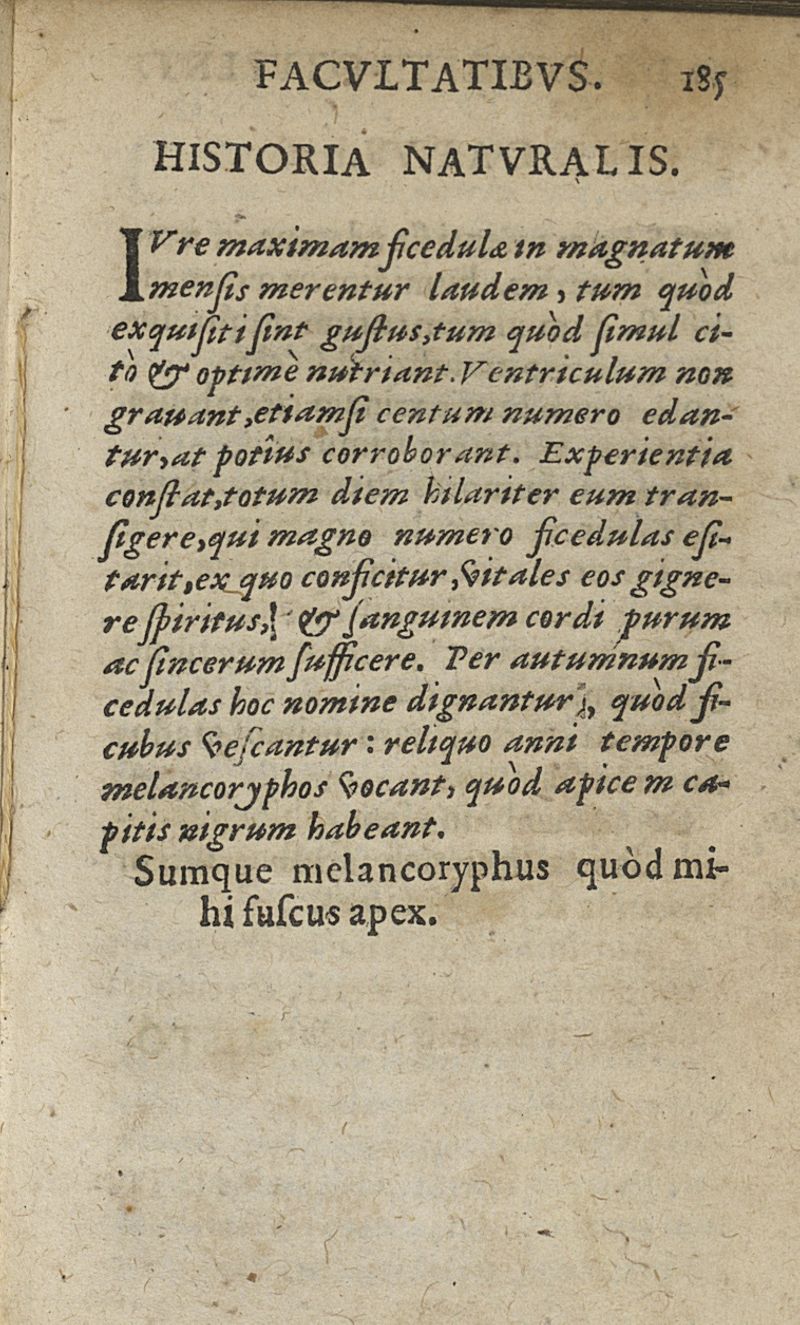 FACVLTATIBVS. 185
HISTORIA NATVRALIS.
IVre maximam ficedulæ in magnatum
mensis merentur laudem, tum quòd
exquisiti sint gustus, tum quòd simul ci-
tò & optimè nutriant. Ventriculum non
grauant, etiamsi centum numero edan-
tur, at potîus corroborant. Experientia
constat, totum diem hilariter eum tran-
sigere, qui magno numero ficedulas esi-
tarit, ex quo conficitur, vitales eos gigne-
re spiritus, & sanguinem cordi purum
ac sincerum sufficere. Per autumnum fi-
cedulas hoc nomine dignantur, quòd fi-
cubus vescantur: reliquo anni tempore
melancoryphos vocant, quòd apicem ca-
pitis nigrum habeant.
Sumque melancoryphus quòd mi-
hi fuscus apex.